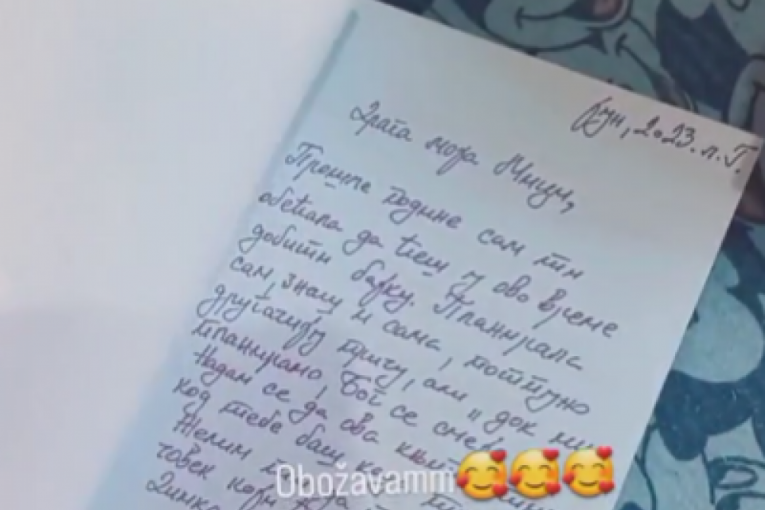 Јун, 2023. л.Г.
Драга моја Мици,
Прошле године сам ти
обећала да ћеш у ово време
добити бајку. Планирала
сам, знаш и сама, потпуно
другачију причу, али „док ми
планирамо, Бог се смеје
Надам се да ова књига
код тебе баш
Желим ти да
човек који
Obožavamm🥰🥰🥰